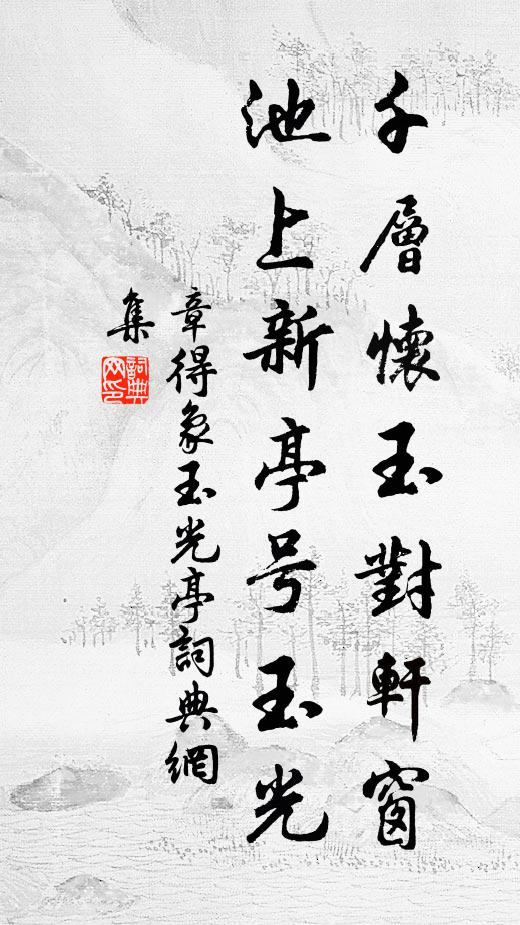 千層懷玉對軒窗
池上新亭号玉光
章得象玉光亭詞典網
集
詞典
网印